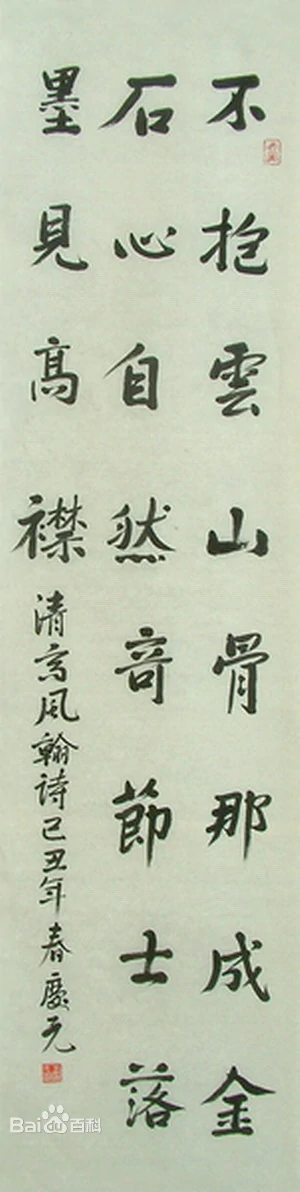 不抱雲山骨那成金
石心自然奇節士落
墨見高襟
清高風翰诗己丑年春慶元
Bai百科